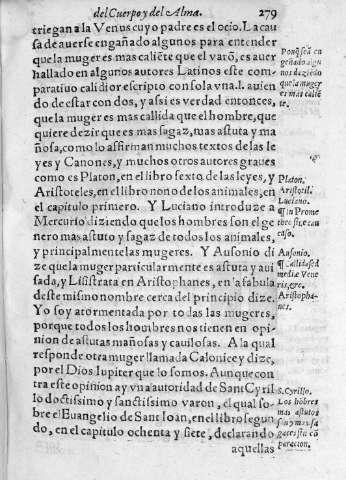 del Cuerpo y del Alma. 279
triegan a la Venus cuyo padre es el ocio. La cau
sa de auerse engañado algunos para entender
que la muger es mas caliẽte que el varõ, es auer
hallado en algunos autores Latinos este com-
paratiuo calidior escripto con sola vna .l. auien
do de estar con dos, y assi es verdad entonces,
que la muger es mas callida que el hombre, que
quiere dezir que es mas sagaz, mas astuta y ma
ñosa, como lo affirman muchos textos de las le
yes y Canones, y muchos otros autores graues
como es Platon, en el libro sexto de las leyes, y
Aristoteles, en el libro nono de los animales, en
el capitulo primero. Y Luciano introduze a
Mercurio diziendo que los hombres son el ge
nero mas astuto y sagaz de todos los animales,
y principalmente las mugeres. Y Ausonio di
ze que la muger particularmente es astuta y aui
sada, y Lisistrata en Aristophanes, en la fabula
deste mismo nombre cerca del principio dize.
Yo soy atormentada por todas las mugeres,
porque todos los hombres nos tienen en opi-
nion de astutas mañosas y cauilosas. A la qual
responde otra muger llamada Calonice y dize,
por el Dios Iupiter que lo somos. Aunque con
tra este opinion ay vna autoridad de Sant Cyril
lo doctissimo y sanctissimo varon, el qual so-
bre el Euangelio de Sant Ioan, en el libro segun
do, en el capitulo ochenta y siete, declarando
aquellas
Porq̃ se ã en
gañado algu
nos dizẽdo
que la muger
es mas caliẽ
te.
Platon.
Aristotil.
Luciano.
¶ In Prome
Ausonio.
¶ Callida sed
mediæ Vene
ris, &c.
Aristopha-
nes.
S. Cyrillo.
Los hõbres
mas astutos